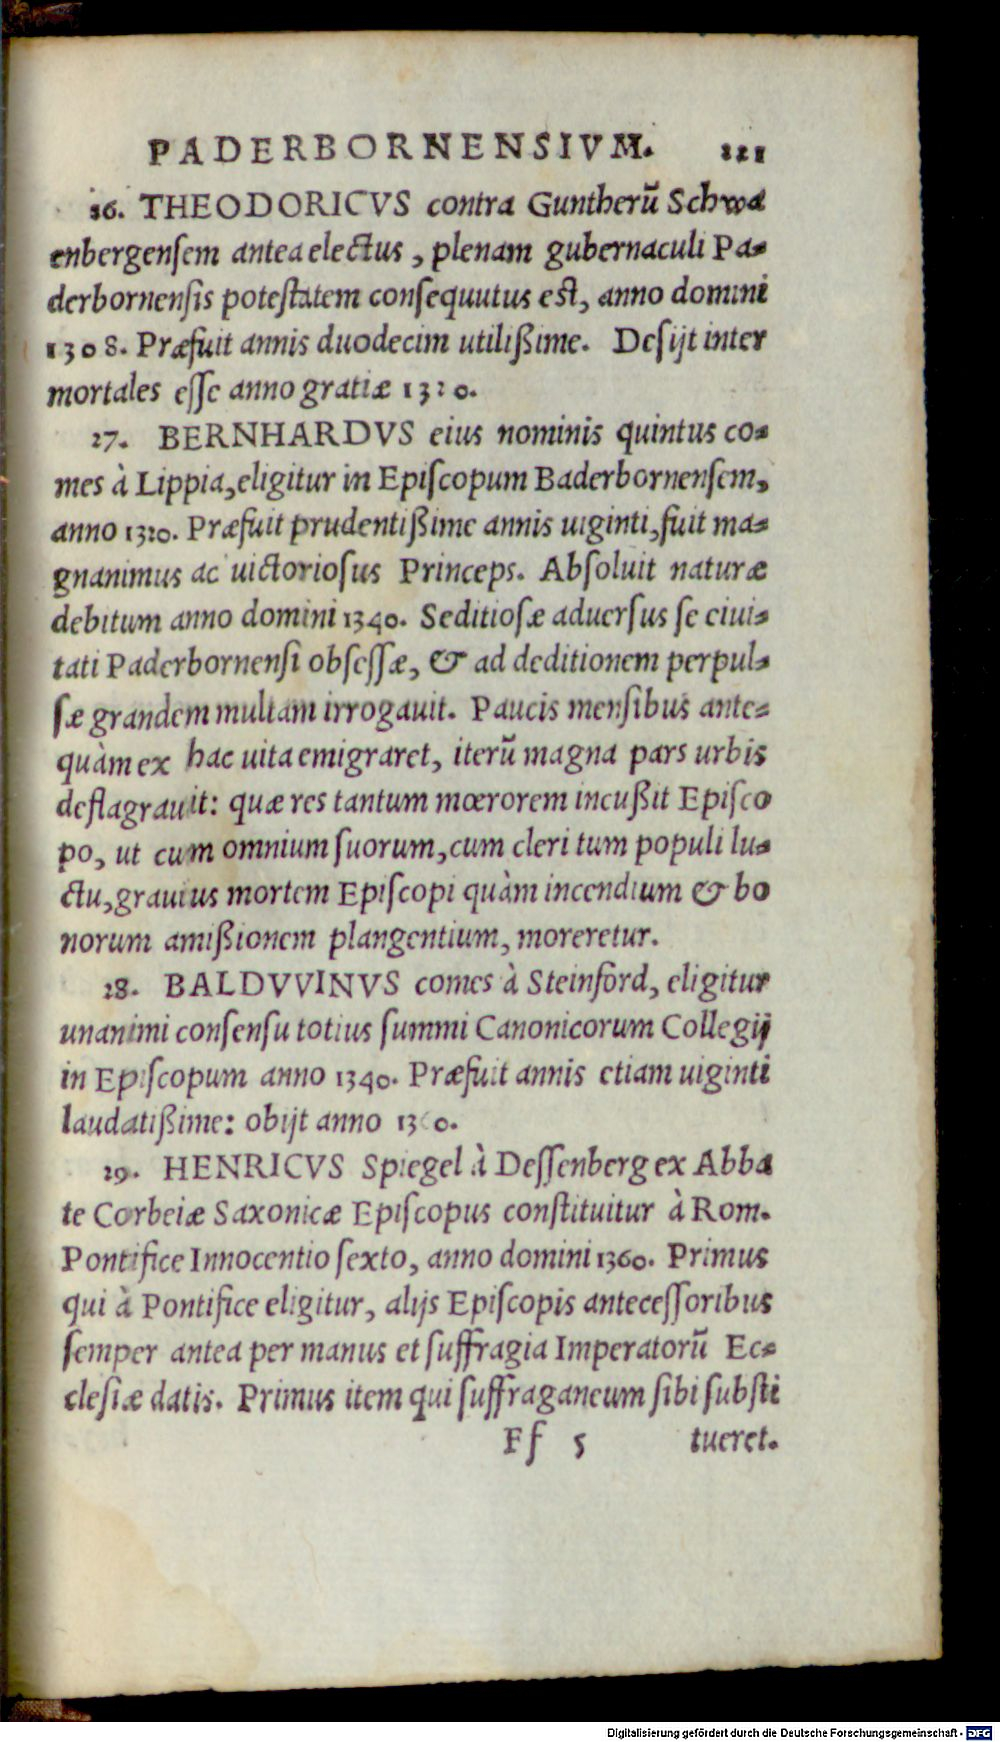 PADERBORNENSIVM. 221
26. THEODORICVS contra Guntherũ Schwa
enbergensem antea electus, plenam gubernaculi Pa-
derbornensis potestatem consequutus est, anno domini
1308. Præfuit annis duodecim utilißime. Desijt inter
mortales esse anno gratiæ 1320.
27. BERNHARDVS eius nominis quintus co-
mes à Lippia, eligitur in Episcopum Baderbornensem,
anno 1320. Præfuit prudentißime annis uiginti, fuit ma-
gnanimus ac uictoriosus Princeps. Absoluit naturæ
debitum anno domini 1340. Seditiosæ aduersus se ciui-
tati Paderbornensi obsessæ, & ad deditionem perpul-
sæ grandem multam irrogauit. Paucis mensibus ante-
quàm ex hac uita emigraret, iterũ magna pars urbis
deflagrauit: quæ res tantum mœrorem incußit Episco
po, ut cum omnium suorum, cum cleri tum populi lu-
ctu, grauius mortem Episcopi quàm incendium & bo
norum amißionem plangentium, moreretur.
28. BALDVVINVS comes à Steinford, eligitur
unanimi consensu totius summi Canonicorum Collegij
in Episcopum anno 1340. Præfuit annis etiam uiginti
laudatißime: obijt anno 1360.
29. HENRICVS Spiegel à Dessenberg ex Abba
te Corbeiæ Saxonicæ Episcopus constituitur à Rom.
Pontifice Innocentio sexto, anno domini 1360. Primus
qui à Pontifice eligitur, alijs Episcopis antecessoribus
semper antea per manus et suffragia Imperatorũ Ec-
clesiæ datis. Primus item qui suffraganeum sibi substi
Ff 5 tueret.
Digitalisierung gefördert durch die Deutsche Forschungsgemeinschaft - DFG